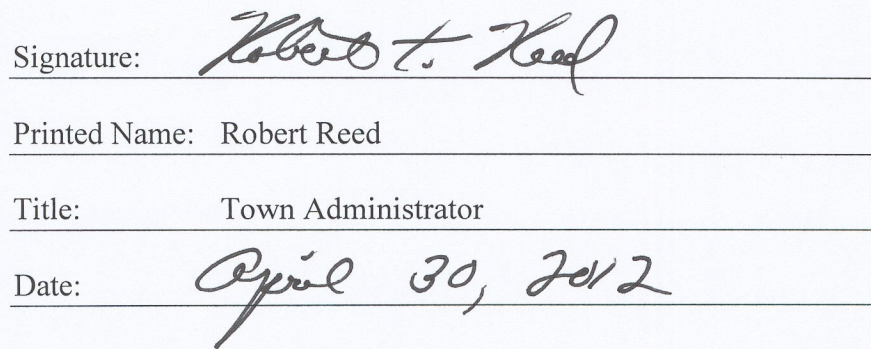 Signature: Robert T. Reed
Printed Name: Robert Reed
Title: Town Administrator
Date: April 30, 2012